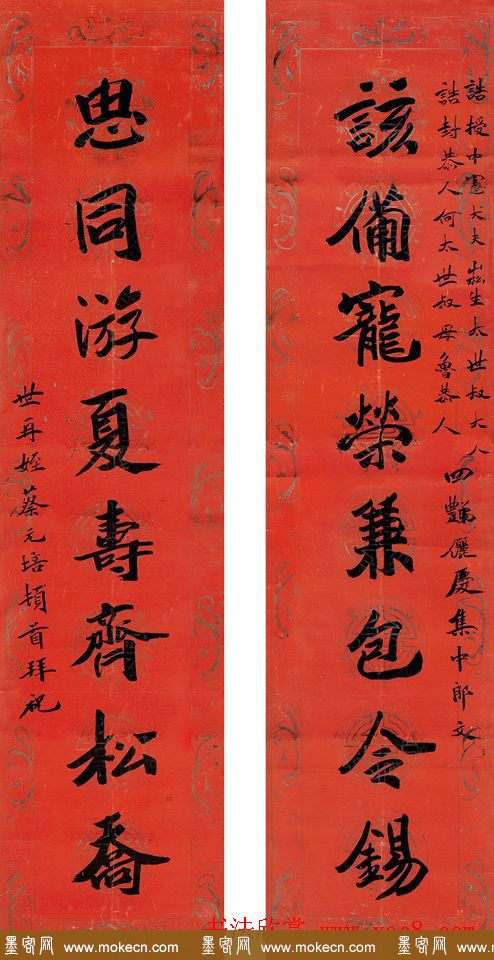 誥授中憲大夫崧生太世叔大人
誥封恭人何太世叔母魯恭人
四儷慶集中郎文
該備寵榮兼包令錫
思同游夏壽齊松喬
世再姪蔡元培頓首拜祝
墨客网 www.mokecn.com 墨客网 www.mokecn.com 墨客网